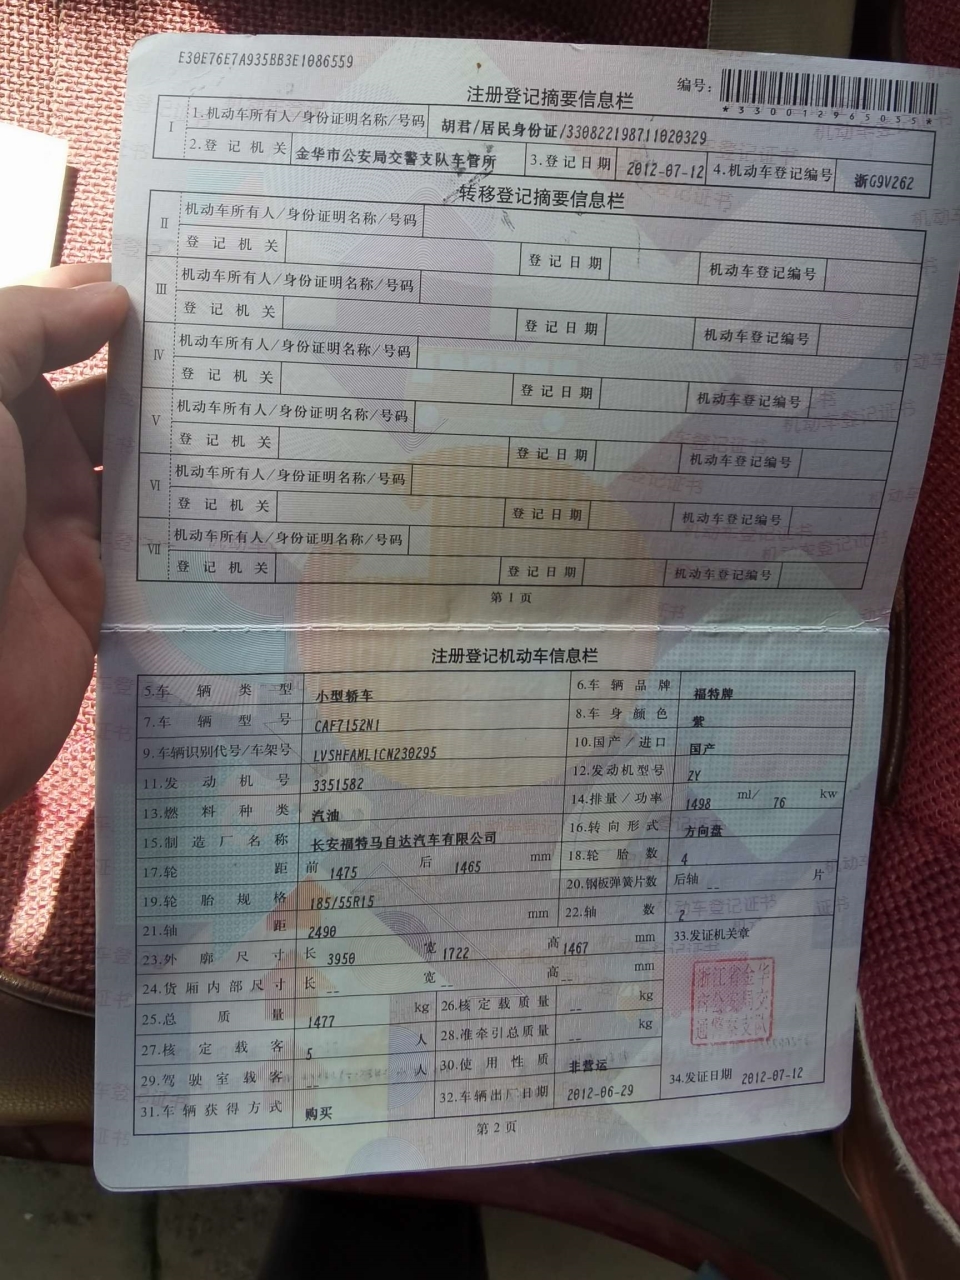 E30E76E7A935BB3E1086559
编号:
*330012965035*
注册登记摘要信息栏
I 1.机动车所有人/身份证明名称/号码 胡君/居民身份证/330822198711020329
2.登记机关 金华市公安局交警支队车管所 3.登记日期 2012-07-12 4.机动车登记编号 浙G9V262
转移登记摘要信息栏
II 机动车所有人/身份证明名称/号码
登记机关 登记日期 机动车登记编号
III 机动车所有人/身份证明名称/号码
登记机关 登记日期 机动车登记编号
IV 机动车所有人/身份证明名称/号码
登记机关 登记日期 机动车登记编号
V 机动车所有人/身份证明名称/号码
登记机关 登记日期 机动车登记编号
VI 机动车所有人/身份证明名称/号码
登记机关 登记日期 机动车登记编号
VII 机动车所有人/身份证明名称/号码
登记机关 登记日期 机动车登记编号
第1页
注册登记机动车信息栏
5.车辆类型 小型轿车 6.车辆品牌 福特牌
7.车辆型号 CAF7152N1 8.车身颜色 紫
9.车辆识别代号/车架号 LVSHFAML1CN230295 10.国产/进口 国产
11.发动机号 3351582 12.发动机型号 ZY
13.燃料种类 汽油 14.排量/功率 1498 ml/ 76 kw
15.制造厂名称 长安福特马自达汽车有限公司 16.转向形式 方向盘
17.轮距 前 1475 后 1465 mm 18.轮胎数 4
19.轮胎规格 185/55R15 20.钢板弹簧片数 后轴 -- 片
21.轴距 2490 mm 22.轴数 2
23.外廓尺寸 长 3950 宽 1722 高 1467 mm 33.发证机关章
24.货厢内部尺寸 长 -- 宽 -- 高 -- mm
浙江省金华市公安局交通警察支队
25.总质量 1477 kg 26.核定载质量 -- kg
27.核定载客 5 人 28.准牵引总质量 -- kg
29.驾驶室载客 -- 人 30.使用性质 非营运
31.车辆获得方式 购买 32.车辆出厂日期 2012-06-29 34.发证日期 2012-07-12
第2页